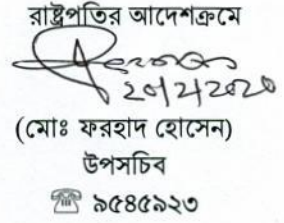 রাষ্ট্রপতির আদেশক্রমে
২০/২/২০২০
(মোঃ ফরহাদ হোসেন)
উপসচিব
☎ ৯৫৪৫৯২৩